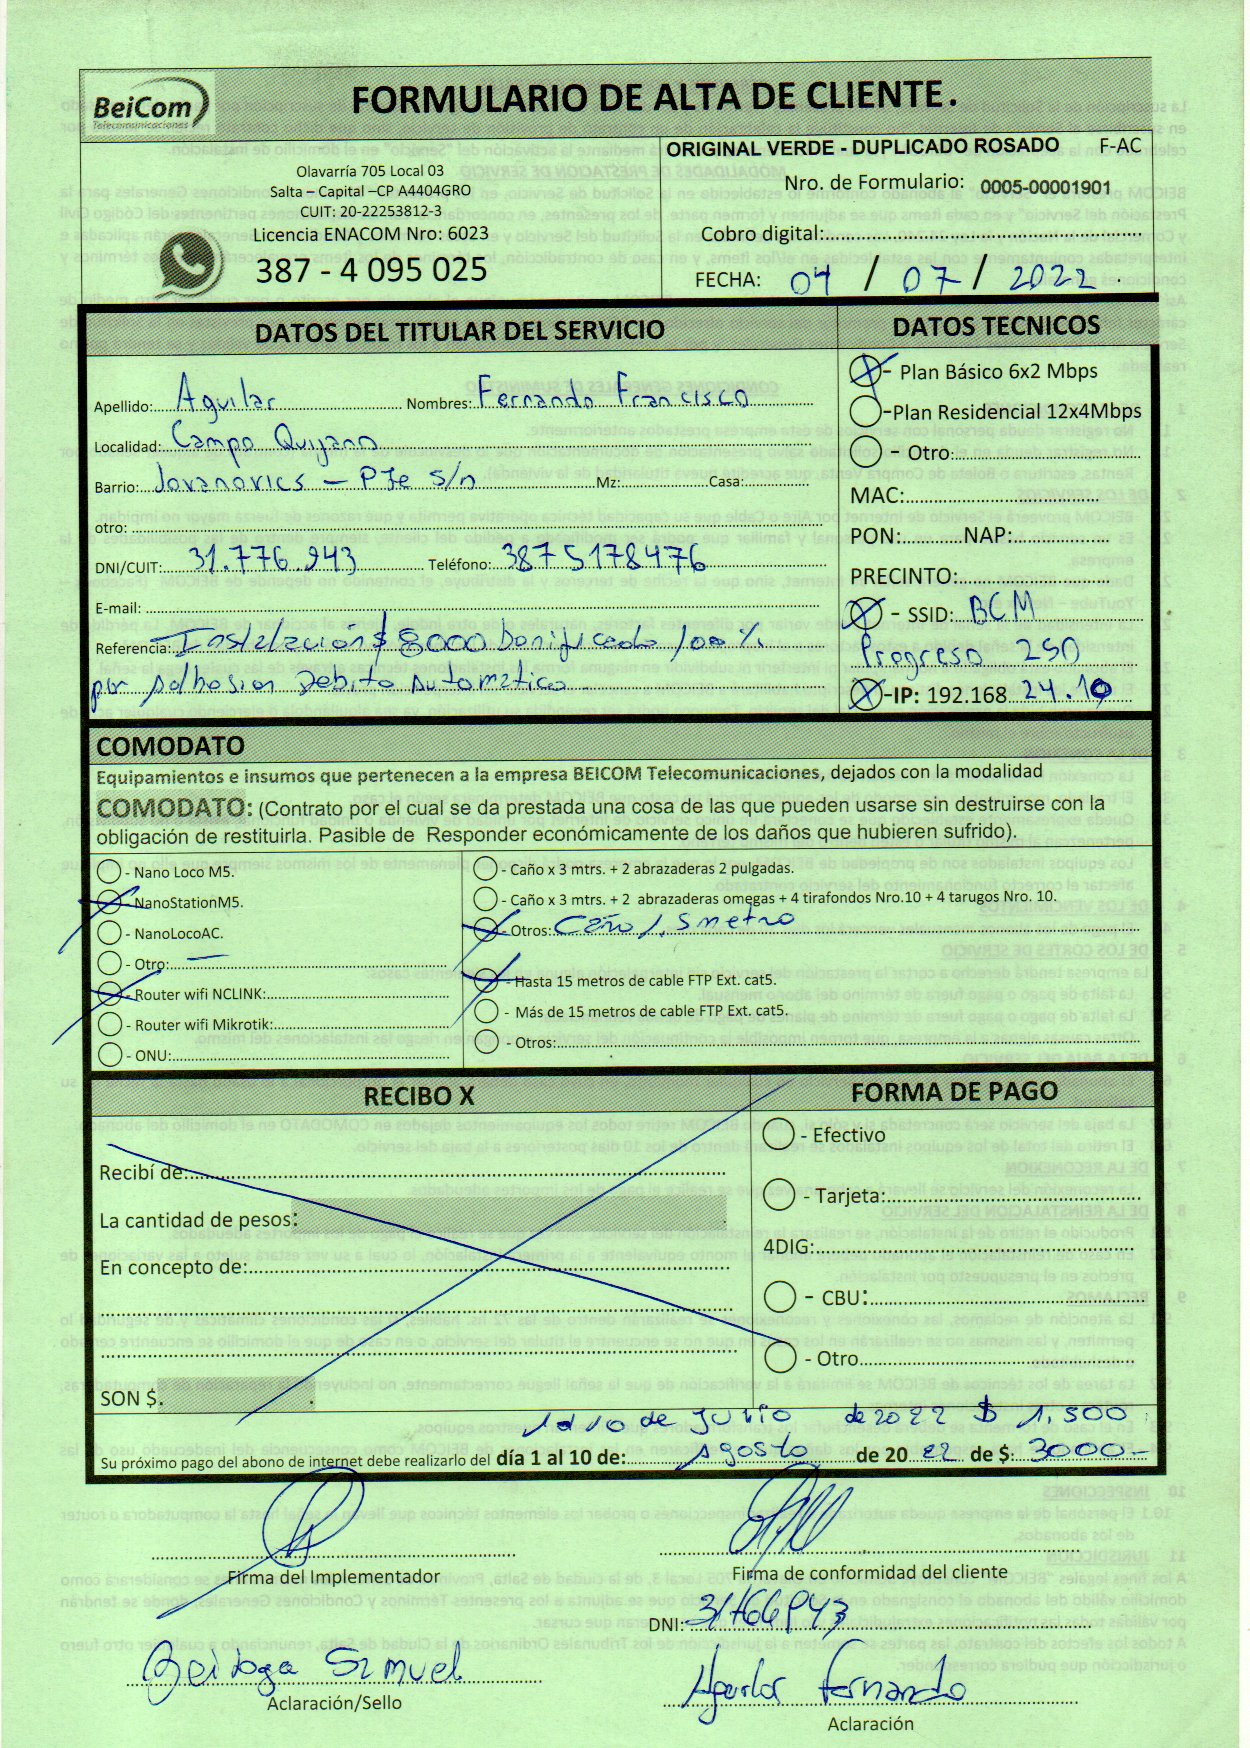 BeiCom
Telecomunicaciones
FORMULARIO DE ALTA DE CLIENTE.
Olavarría 705 Local 03
Salta – Capital –CP A4404GRO
CUIT: 20-22253812-3
Licencia ENACOM Nro: 6023
387 - 4 095 025
ORIGINAL VERDE - DUPLICADO ROSADO F-AC
Nro. de Formulario: 0005-00001901
Cobro digital:
FECHA: 04 / 07 / 2022
DATOS DEL TITULAR DEL SERVICIO
Apellido: Aguilar Nombres: Fernando Francisco
Localidad: Campo Quijano
Barrio: Jovanovics – PJe S/n Mz: Casa:
otro:
DNI/CUIT: 31.776.943 Teléfono: 3875178476
E-mail:
Referencia: Instalación $ 8000 bonificado 100 %
por Adhesion Debito Automatico
DATOS TECNICOS
- Plan Básico 6x2 Mbps
-Plan Residencial 12x4Mbps
- Otro
MAC:
PON: NAP:
PRECINTO:
- SSID: BCM
Progreso 250
-IP: 192.168. 24.10
COMODATO
Equipamientos e insumos que pertenecen a la empresa BEICOM Telecomunicaciones, dejados con la modalidad
COMODATO: (Contrato por el cual se da prestada una cosa de las que pueden usarse sin destruirse con la
obligación de restituirla. Pasible de Responder económicamente de los daños que hubieren sufrido).
- Nano Loco M5.
- NanoStationM5.
- NanoLocoAC.
- Otro: —
- Router wifi NCLINK:
- Router wifi Mikrotik:
- ONU:
- Caño x 3 mtrs. + 2 abrazaderas 2 pulgadas.
- Caño x 3 mtrs. + 2 abrazaderas omegas + 4 tirafondos Nro.10 + 4 tarugos Nro. 10.
- Otros: Caño 1.5metro
- Hasta 15 metros de cable FTP Ext. cat5.
- Más de 15 metros de cable FTP Ext. cat5.
- Otros:
RECIBO X
Recibí de:
La cantidad de pesos:
En concepto de:
SON $.
FORMA DE PAGO
- Efectivo
- Tarjeta:
4DIG:
- CBU:
- Otro
1 al 10 de Junio de 2022 $ 1.500
Su próximo pago del abono de internet debe realizarlo del día 1 al 10 de: Agosto de 20 22 de $: 3000-
Firma del Implementador
Aclaración/Sello
Firma de conformidad del cliente
DNI:
Aguilar Fernando
Aclaración